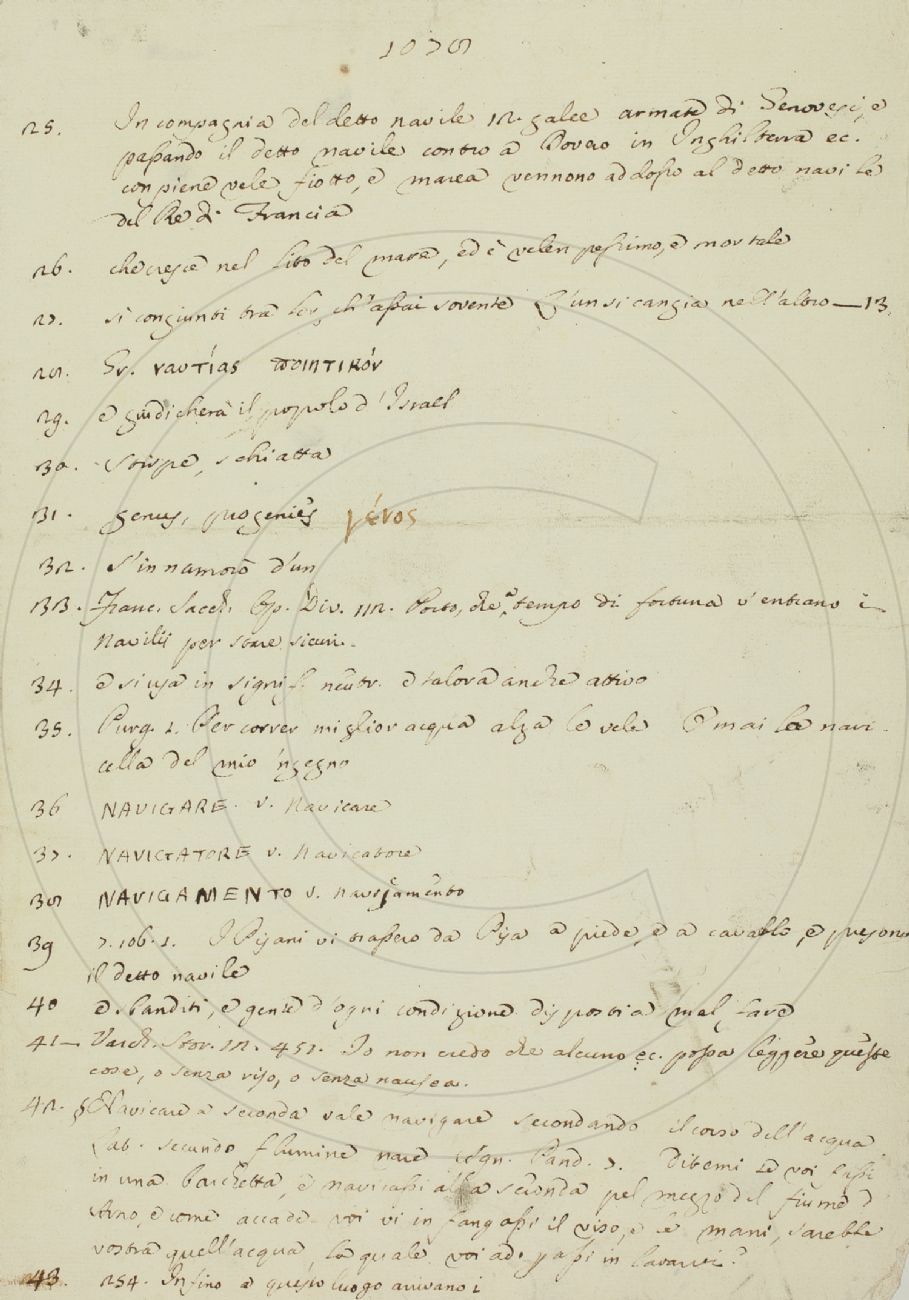 1078
25. In compagnia del detto navile 12. galee armate di Genovesi, e
passando il detto navile contro a Rovero in Inghilterra ec.
con piene vele fiotto, e marea vennono addosso al detto navile
del Re di Francia
26. che cresce nel lito del mare, ed è velen pessimo, e mortale
27. si congiunti tra lor, ch'assai sovente L'un si cangia nell'altro — 13.
28. Gr. ναυτίας ποιητικόν
29. e giudicherà il popolo d'Israel
30. Stirpe, schiatta
31. genus, progenies γένος
32. S'innamorò d'un
33. Franc. Sacch. Op. Div. 112. Porto, che a tempo di fortuna v'entrano i
Navilii per stare sicuri.
34. e si usa in signif. neutr. e talora anche attivo
35. Purg. 1. Per correr miglior acqua alza le vele Omai la navi-
cella del mio 'ngegno
36 NAVIGARE. v. Navicare
37. NAVIGATORE v. Navicatore
38 NAVIGAMENTO v. Navicamento
39 7. 106. 1. I Pisani vi trassero da Pisa a piede, e a cavallo, e presono
il detto navile
40 e sbanditi, e gente d'ogni condizione disposti a mal fare
41— Varch. Stor. 12. 451. Io non credo che alcuno ec. possa leggere queste
cose, o senza riso, o senza nausea.
42. § Navicare a seconda vale navigare secondando il corso dell'acqua
Lat. secundo flumine nare Agn. Pand. 7. Ditemi se voi fussi
in una barchetta, e navicassi alla seconda pel mezzo del fiume d
Arno, e come accade voi vi infangassi il viso, e le mani, sarebbe
vostra quell'acqua la quale voi adopassi in lavarvi?
43. 254. Infino a questo luogo arrivano i